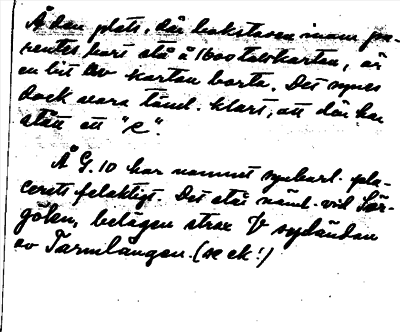 Å den plats, där bokstaven inom pa-
rentes bort stå å 1600talskartan, är
en bit av kartan borta. Det synes
dock vara täml. klart, att där har
stått ett "e".
Å G. 10 har namnet synbarl. pla-
cerats felaktigt. Det står näml. vid Sär-
gölen, belägen strax V sydändan
av Tarmlången. (se ek!)